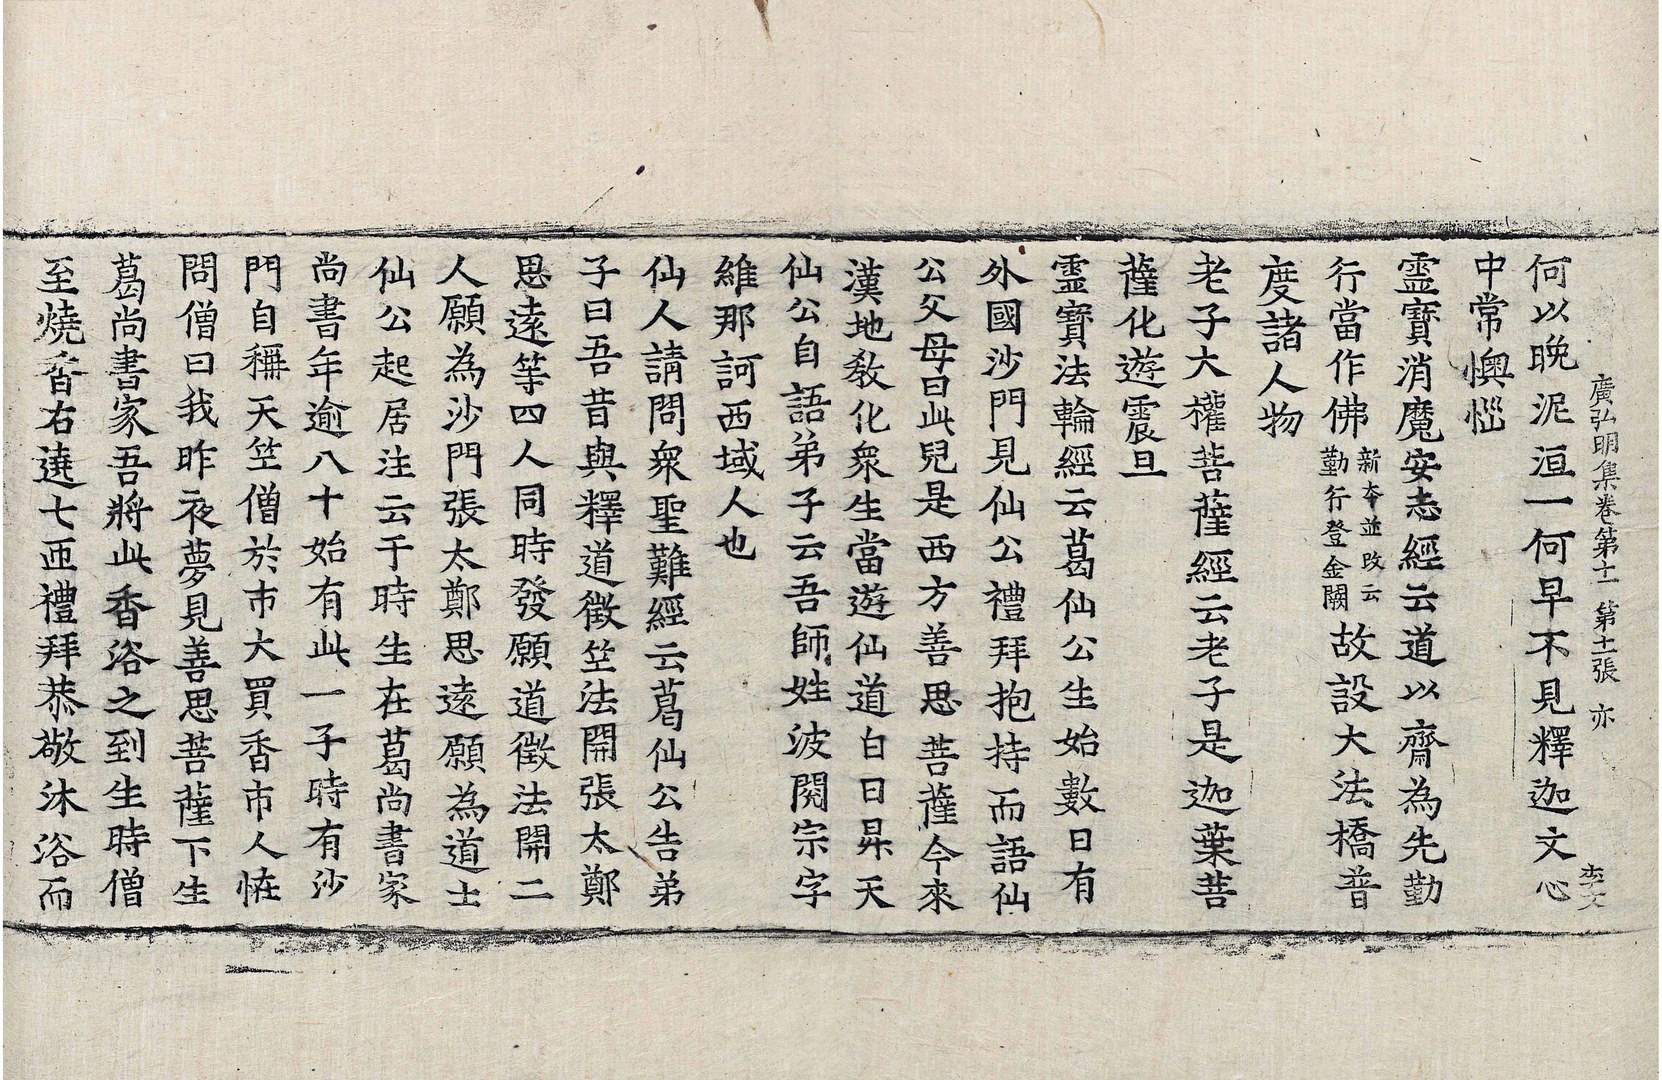 廣弘明集卷第十一 第十一張 亦 李文
何以晚泥洹一何早不見釋迦文心
中常懊惱
靈寶消魔安志經云道以齋為先勤
行當作佛新本並改云勤行登金闕故設大法橋普
度諸人物
老子大權菩薩經云老子是迦葉菩
薩化遊震旦
靈寶法輪經云葛仙公生始數日有
外國沙門見仙公禮拜抱持而語仙
公父母曰此兒是西方善思菩薩今來
漢地教化眾生當遊仙道白日昇天
仙公自語弟子云吾師姓波閱宗字
維那訶西域人也
仙人請問眾聖難經云葛仙公告弟
子曰吾昔與釋道微竺法開張太鄭
思遠等四人同時發願道微法開二
人願為沙門張太鄭思遠願為道士
仙公起居注云于時生在葛尚書家
尚書年逾八十始有此一子時有沙
門自稱天竺僧於市大買香市人恠
問僧曰我昨夜夢見善思菩薩下生
葛尚書家吾將此香浴之到生時僧
至燒香右遶七匝禮拜恭敬沐浴而